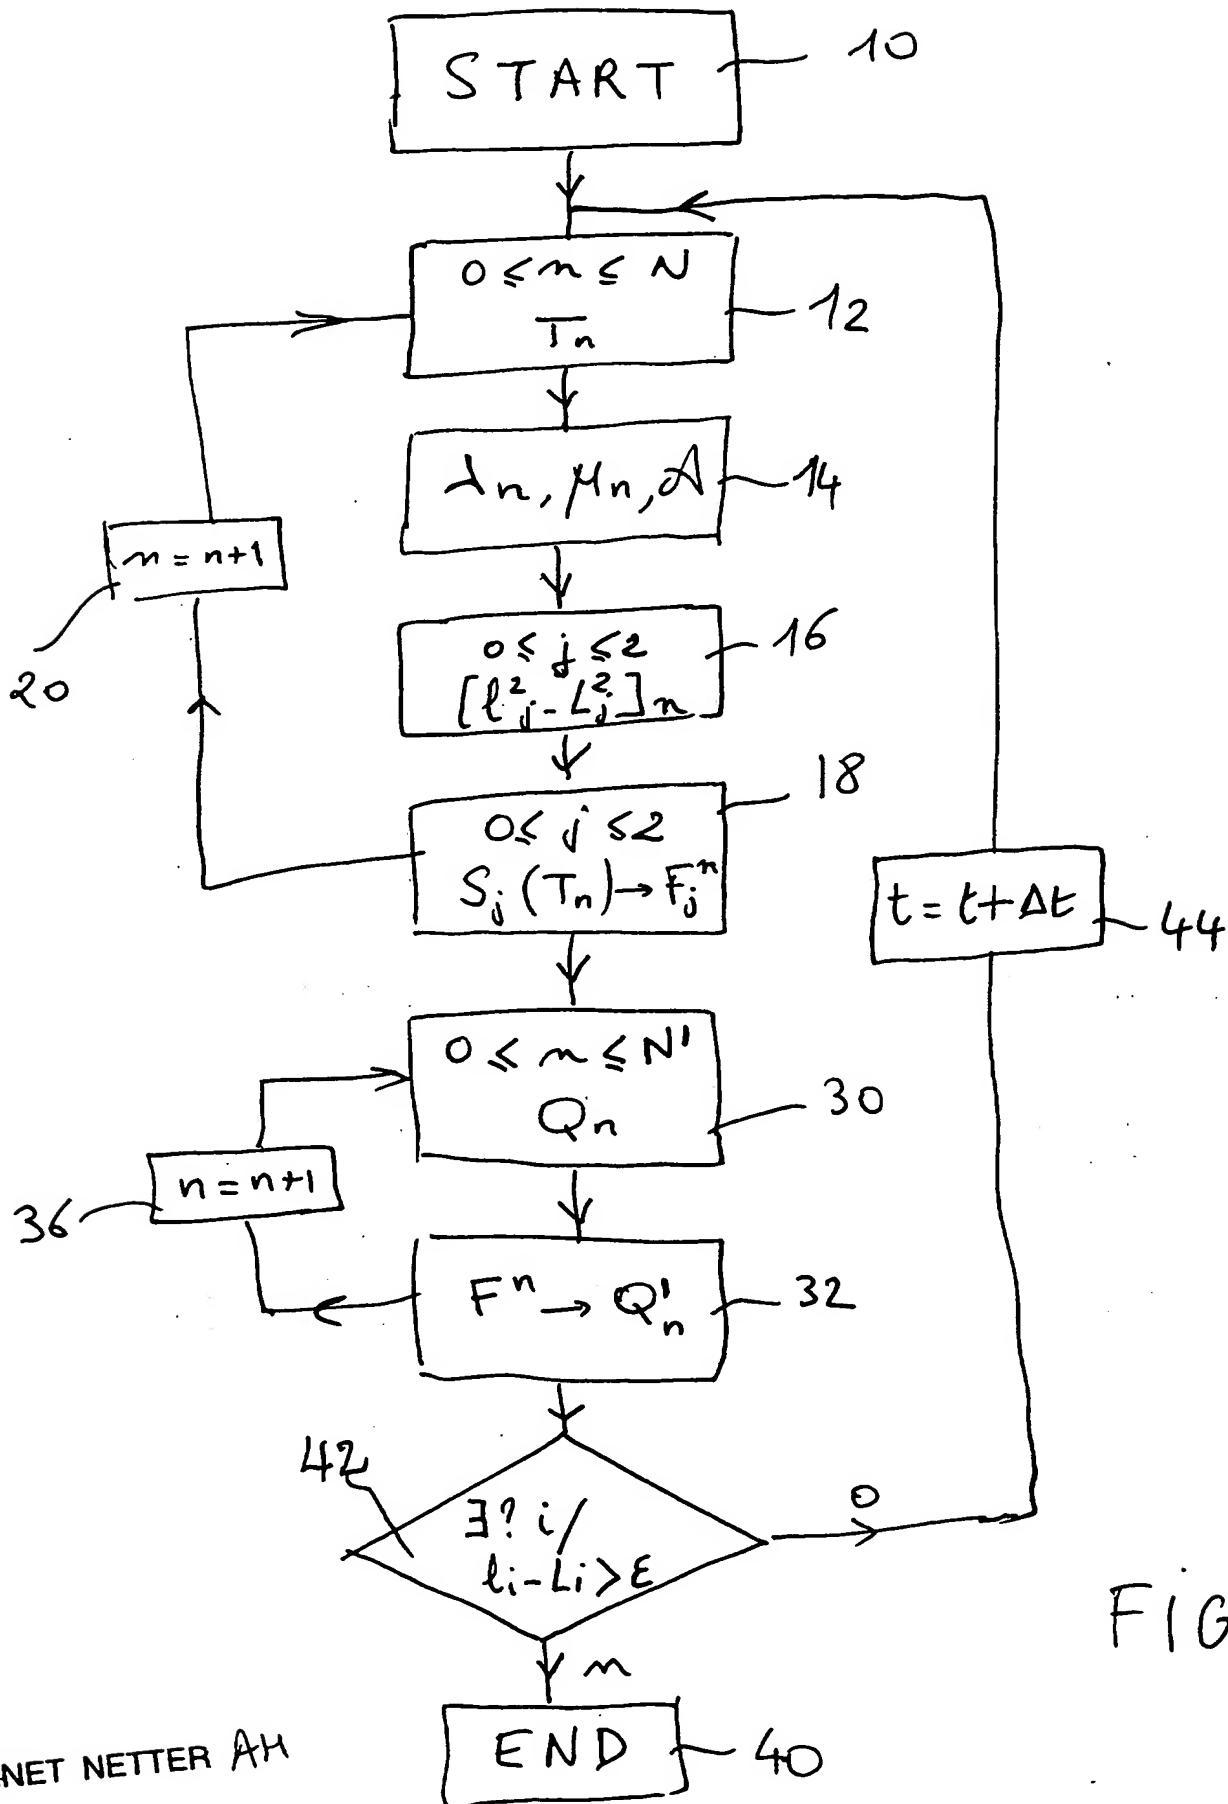 START
10
0 ≤ n ≤ N
Tn
12
λn, μn, A
14
n = n+1
20
0 ≤ j ≤ 2
[l²j - L²j]n
16
0 ≤ j ≤ 2
Sj (Tn) → Fjⁿ
18
t = t + Δt
44
0 ≤ n ≤ N'
Qn
30
n = n+1
36
Fⁿ → Q'n
32
42
∃? i /
li - Li > ε
o
n
END
40
FIG
NET NETTER AH